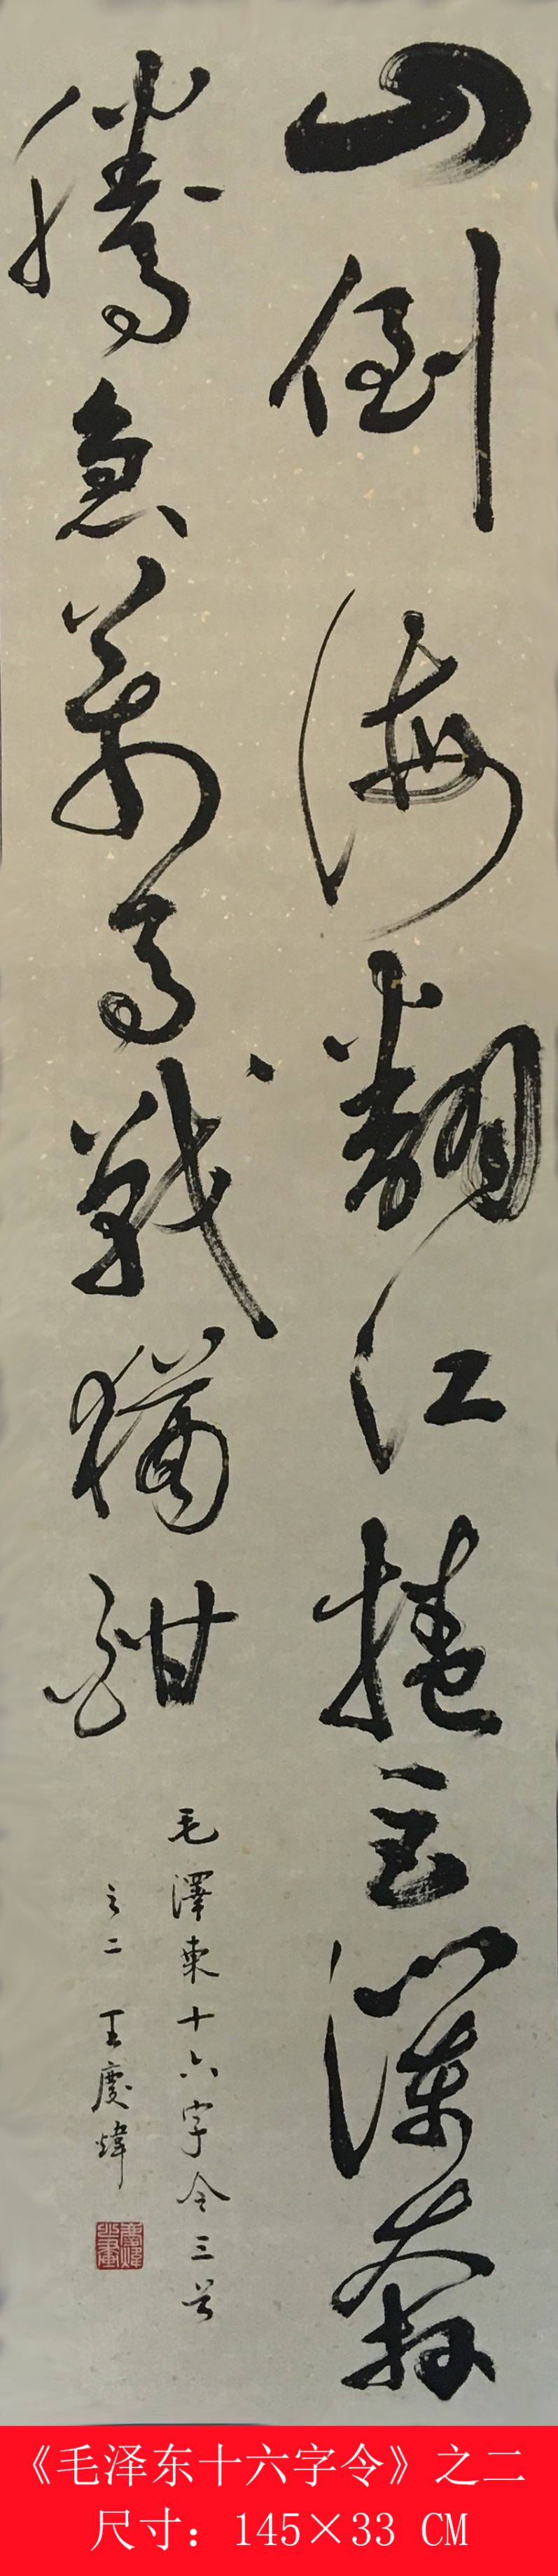 山倒海翻江捲巨瀾奔
騰急萬馬戰猶酣
毛澤東十六字令三首
之二 王慶煒
《毛泽东十六字令》之二
尺寸：145×33 CM